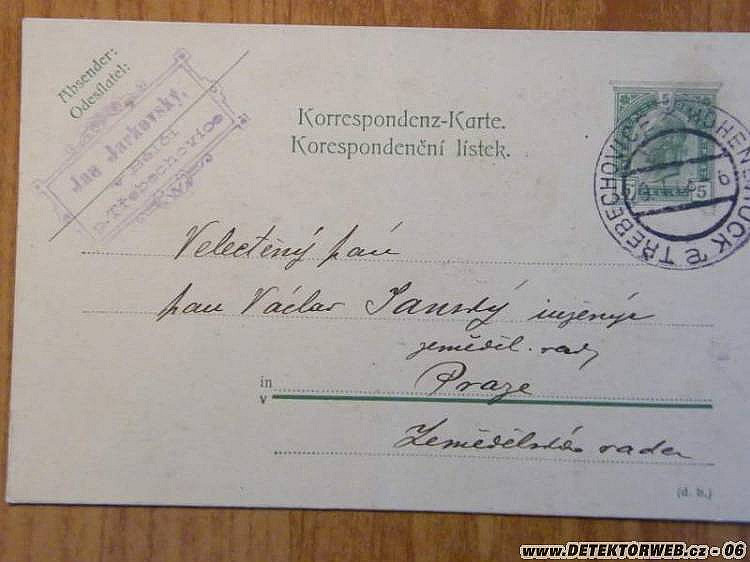 Absender:
Odesílatel:
Jan Jarkovský,
Třebechovice
Korrespondenz-Karte.
Korespondenční lístek.
5
5
TŘEBECHOVICE HOHENBRUCK
6
Velectěný pán
pan Václav Janský inženýr
zeměděl. rady
in Praze
v
Zemědělská rada
(d. b.)
www.DETEKTORWEB.cz - 06